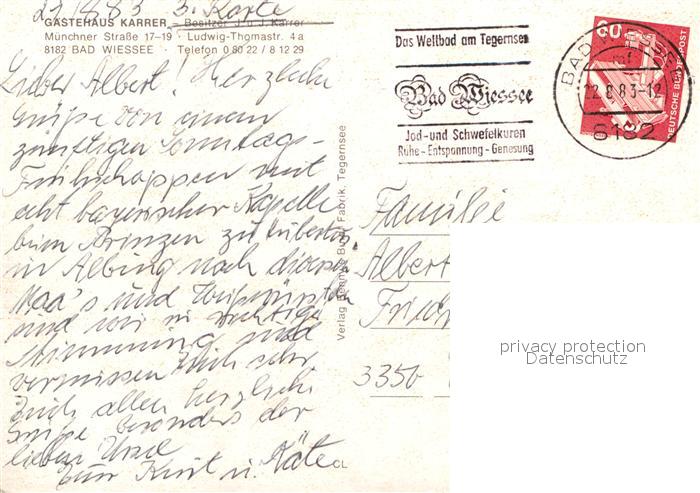 21/8 83 3. Karte
GÄSTEHAUS KARRER - Besitzer J. u. J. Karrer
Münchner Straße 17-19 · Ludwig-Thomastr. 4 a
8182 BAD WIESSEE · Telefon 0 80 22 / 8 12 29
Lieber Albert! Herzliche
Grüße von einem
zünftigen Sonntags-
Frühschoppen mit
echt bayerischer Kapelle
beim Prinzen zu
in nach diversen
Maa's und Weißwürsten
sind wir in richtiger
Stimmung und
vermissen Euch sehr
Euch allen herzliche
Grüße besonders der
lieben Ursel
Eure Kurt u. Käte
Verlag Fabrik, Tegernsee
Das Weltbad am Tegernsee
Bad Wiessee
Jod- und Schwefelkuren
Ruhe - Entspannung - Genesung
BAD WIESSEE
22.8.83-12
8182
60
DEUTSCHE BUNDESPOST
Familie
Albert
Fried
3350
privacy protection
Datenschutz